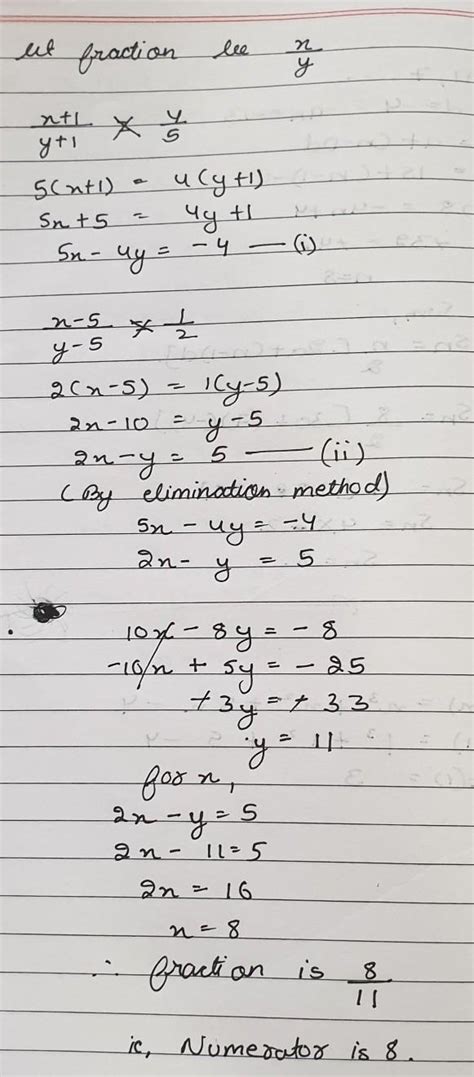 let fraction be x/y
x+1/y+1 × 4/5
5(x+1) = 4(y+1)
5x+5 = 4y+1
5x-4y = -4 — (i)
x-5/y-5 × 1/2
2(x-5) = 1(y-5)
2x-10 = y-5
2x-y = 5 — (ii)
(By elimination method)
5x-4y=-4
2x- y = 5
10x-8y=-8
-10x + 5y = -25
+3y=+33
y = 11
for x,
2x-y=5
2x-11=5
2x = 16
x = 8
∴ fraction is 8/11
ie, Numerator is 8.